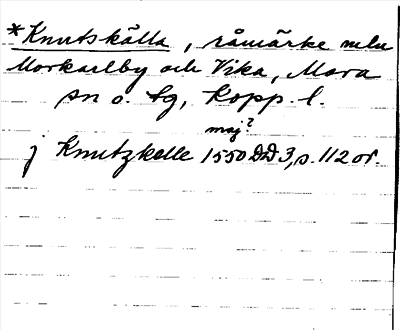 *Knutskälla, råmärke mellan
Morkarlby och Vika, Mora
sn o. tg, Kopp. l.
maj?
j Knutzkelle 1550 DD 3, s. 112 or.